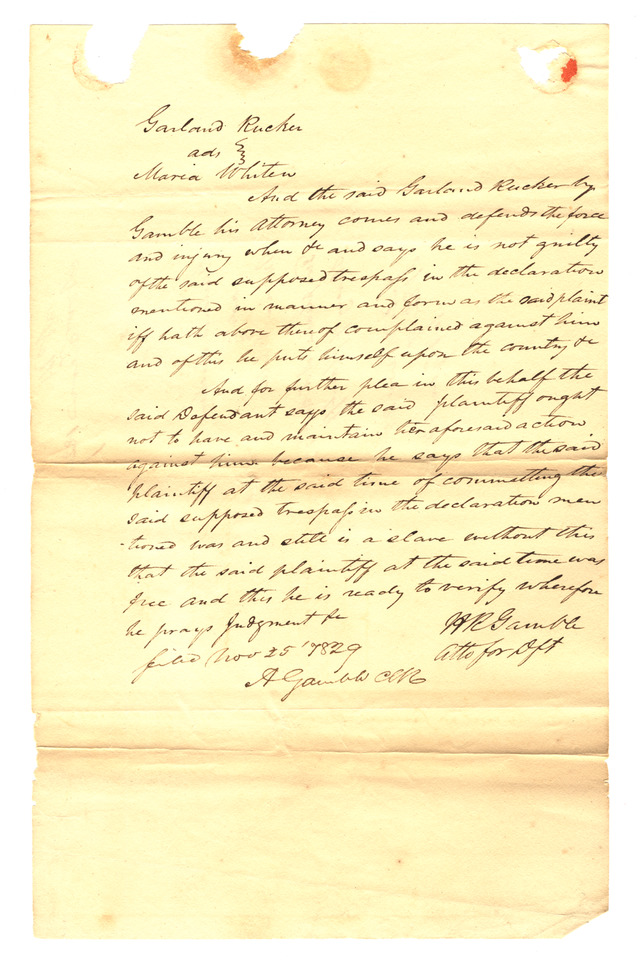 Garland Rucker
ads
Maria Whiten
And the said Garland Rucker by
Gamble his Attorney comes and defends the force
and injury when &c and says he is not guilty
of the said supposed trespass in the declaration
mentioned in manner and form as the said plaint
iff hath above thereof complained against him
and of this he puts himself upon the country &c
And for further plea in this behalf the
said Defendant says the said plaintiff ought
not to have and maintain her aforesaid action
against him because he says that the said
plaintiff at the said time of committing the
said supposed trespass in the declaration men
-tioned was and still is a slave without this
that the said plaintiff at the said time was
free and this he is ready to verify wherefore
he prays Judgment &c
H R Gamble
Atto for Dft
filed Nov 25 1829
A Gamble Clk